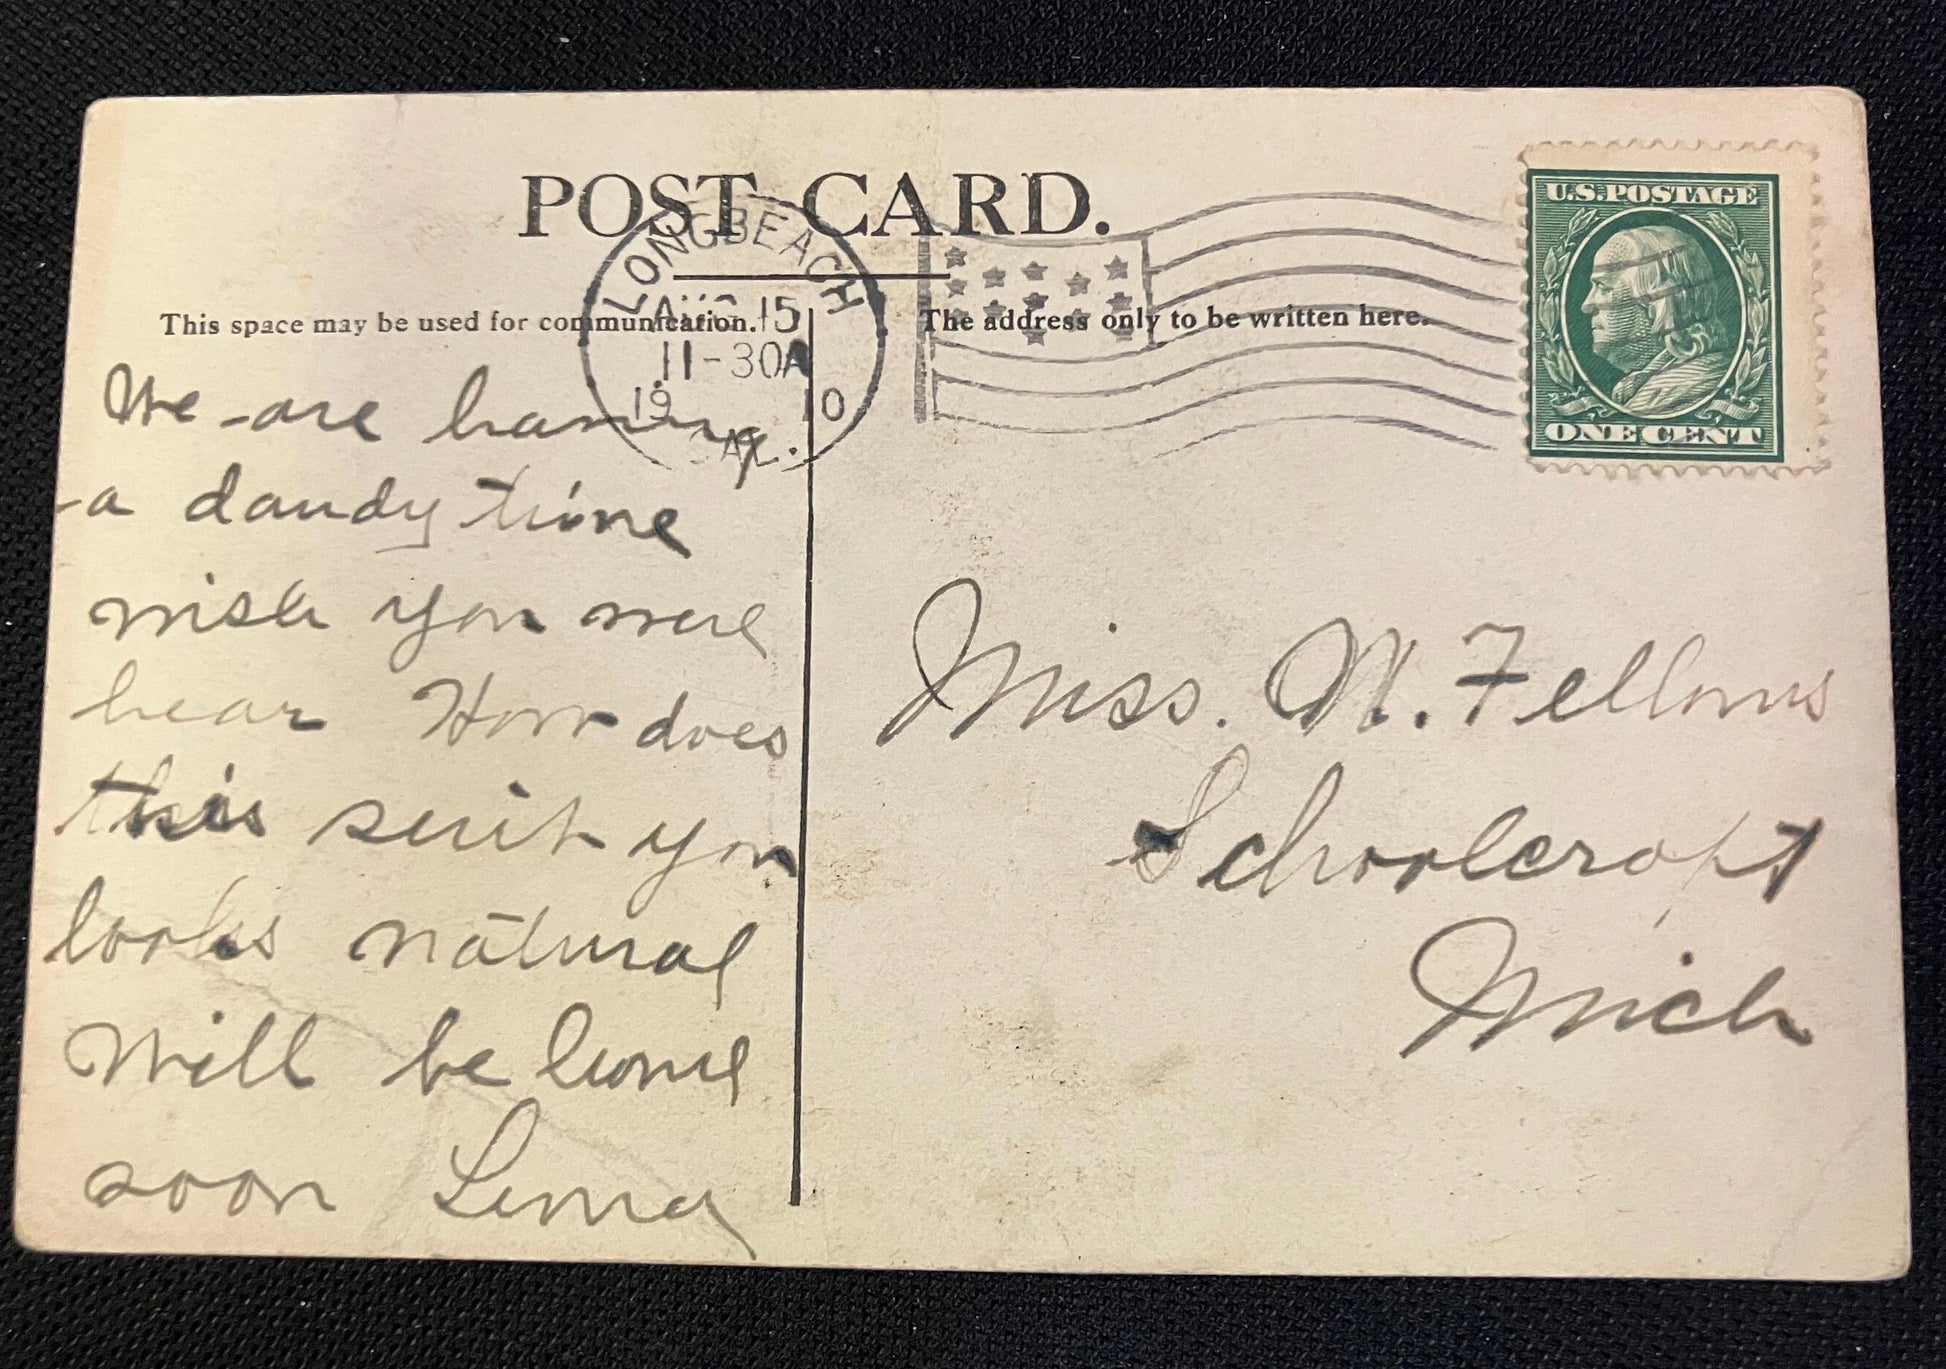 POST CARD.
LONGBEACH
AUG 15
11-30A
1910
CAL.
U.S. POSTAGE
ONE CENT
This space may be used for communication.
The address only to be written here.
We are having
a dandy time
wish you were
hear How does
this suit you
looks natural
Will be home
soon Lena
Miss. N. Fellows
Schoolcraft
Mich